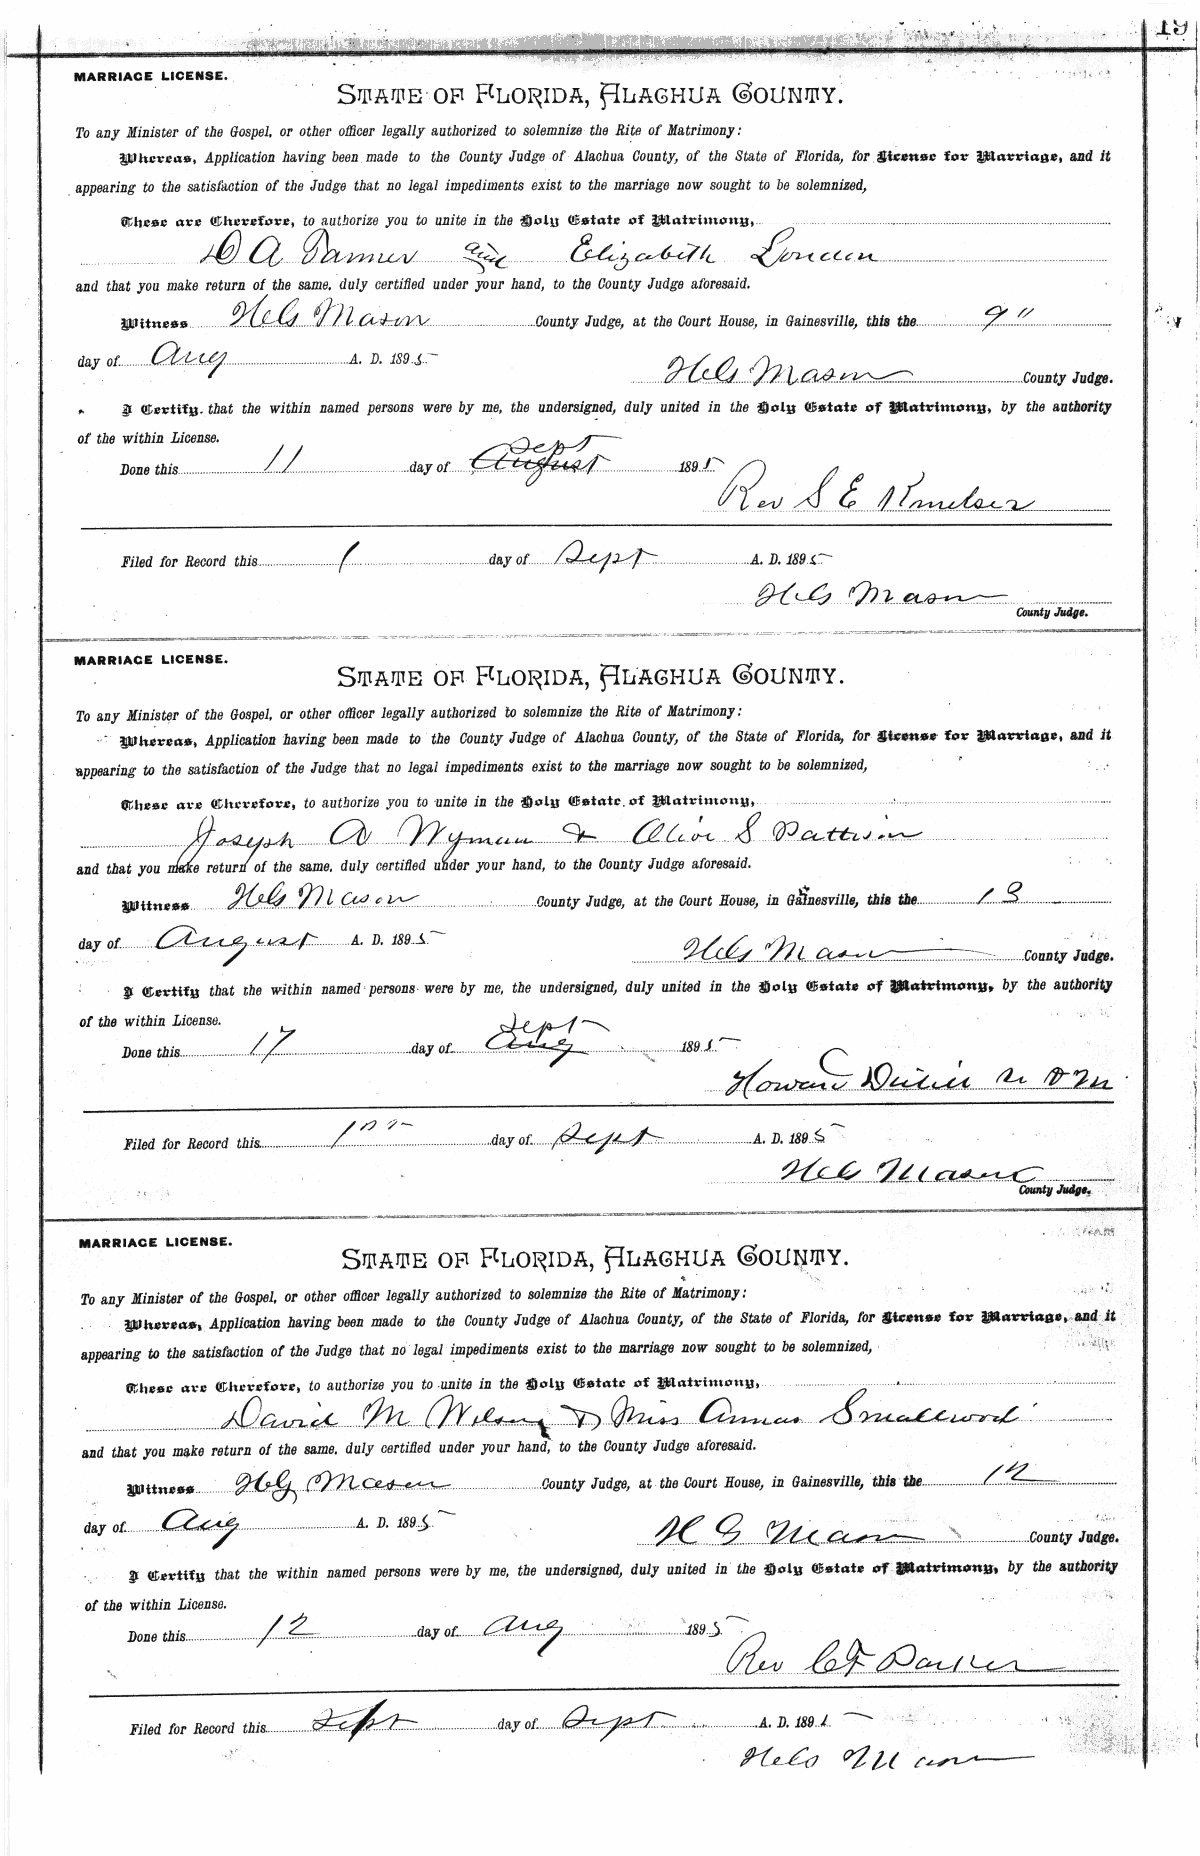 19
MARRIAGE LICENSE.
STATE OF FLORIDA, ALACHUA COUNTY.
To any Minister of the Gospel, or other officer legally authorized to solemnize the Rite of Matrimony:
Whereas, Application having been made to the County Judge of Alachua County, of the State of Florida, for License for Marriage, and it
appearing to the satisfaction of the Judge that no legal impediments exist to the marriage now sought to be solemnized,
These are Therefore, to authorize you to unite in the Holy Estate of Matrimony,
D A Tanner and Elizabeth London
and that you make return of the same, duly certified under your hand, to the County Judge aforesaid.
Witness Mason County Judge, at the Court House, in Gainesville, this the 9"
day of Aug A. D. 1895
Mason County Judge.
I Certify that the within named persons were by me, the undersigned, duly united in the Holy Estate of Matrimony, by the authority
of the within License.
Sept
Done this 11 day of August 1895
Rev S E
Filed for Record this 1 day of Sept A. D. 1895
Mason
County Judge.
MARRIAGE LICENSE.
STATE OF FLORIDA, ALACHUA COUNTY.
To any Minister of the Gospel, or other officer legally authorized to solemnize the Rite of Matrimony:
Whereas, Application having been made to the County Judge of Alachua County, of the State of Florida, for License for Marriage, and it
appearing to the satisfaction of the Judge that no legal impediments exist to the marriage now sought to be solemnized,
These are Therefore, to authorize you to unite in the Holy Estate of Matrimony,
Joseph A Wyman & Olive S Pattison
and that you make return of the same, duly certified under your hand, to the County Judge aforesaid.
Witness Mason County Judge, at the Court House, in Gainesville, this the 13
day of August A. D. 1895
Mason County Judge.
I Certify that the within named persons were by me, the undersigned, duly united in the Holy Estate of Matrimony, by the authority
of the within License.
Sept
Done this 17 day of Aug 1895
Howard
Filed for Record this day of Sept A. D. 1895
Mason
County Judge.
MARRIAGE LICENSE.
STATE OF FLORIDA, ALACHUA COUNTY.
To any Minister of the Gospel, or other officer legally authorized to solemnize the Rite of Matrimony:
Whereas, Application having been made to the County Judge of Alachua County, of the State of Florida, for License for Marriage, and it
appearing to the satisfaction of the Judge that no legal impediments exist to the marriage now sought to be solemnized,
These are Therefore, to authorize you to unite in the Holy Estate of Matrimony,
David M Wilson & Miss Annas Smallwood
and that you make return of the same, duly certified under your hand, to the County Judge aforesaid.
Witness HG Mason County Judge, at the Court House, in Gainesville, this the 12
day of Aug A. D. 1895
H G Mason County Judge.
I Certify that the within named persons were by me, the undersigned, duly united in the Holy Estate of Matrimony, by the authority
of the within License.
Done this 12 day of Aug 1895
Rev C F Parker
Filed for Record this Sept day of Sept A. D. 1895
Mason